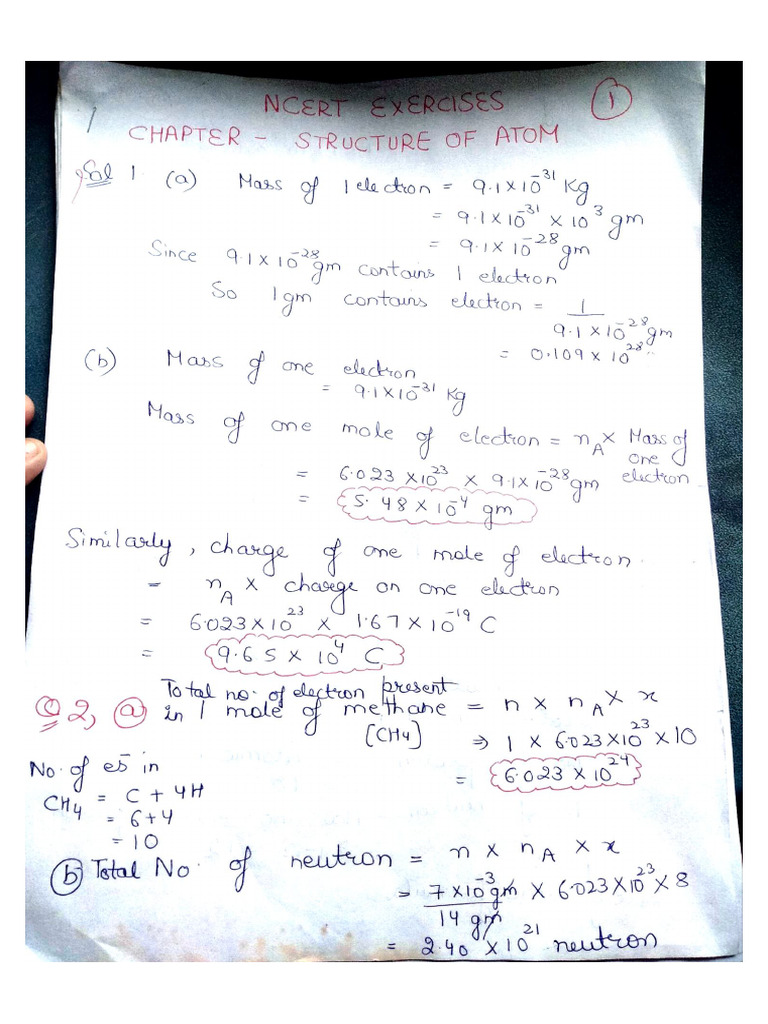 NCERT EXERCISES 1
CHAPTER - STRUCTURE OF ATOM
Sol 1. (a) Mass of 1 electron = 9.1 × 10⁻³¹ Kg
= 9.1 × 10⁻³¹ × 10³ gm
= 9.1 × 10⁻²⁸ gm
Since 9.1 × 10⁻²⁸ gm contains 1 electron
So 1 gm contains electron = 1 / 9.1 × 10⁻²⁸ gm
= 0.109 × 10²⁸
(b) Mass of one electron
= 9.1 × 10⁻³¹ Kg
Mass of one mole of electron = n_A × Mass of one electron
= 6.023 × 10²³ × 9.1 × 10⁻²⁸ gm
= 5.48 × 10⁻⁴ gm
Similarly, charge of one mole of electron
= n_A × charge on one electron
= 6.023 × 10²³ × 1.67 × 10⁻¹⁹ C
= 9.65 × 10⁴ C
Total no. of electron present
Q 2, (a) in 1 mole of methane = n × n_A × x
[CH₄] ⇒ 1 × 6.023 × 10²³ × 10
= 6.023 × 10²⁴
No. of es in
CH₄ = C + 4H
= 6+4
= 10
(b) Total No. of neutron = n × n_A × x
= 7 × 10⁻³ gm / 14 gm × 6.023 × 10²³ × 8
= 2.40 × 10²¹ neutron